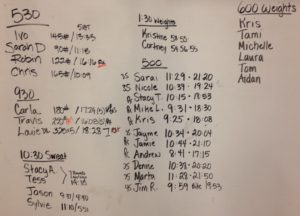 530
Ivo 145# / 13:35
Sarah D 90# / 11:18
Robin 122# / 16:16
Chris 165# / 10:09
930
Carla
Travis
10:30 Sweat
Stacy A.
Tess
Jason 9:31 / 4:50
Sylvie 11:10 / 5:51
1:30 Weights
Kristine 51 55
Cortney 54 56 55
500
25 Sarai 11:29 · 21:20
35 Nicole 10:39 · 19:24
Stacy T. 10:15 · 17:53
Mike L. 9:31 · 18:30
Kris 9:25 · 18:08
Jayme 10:34 · 20:04
Jamie 10:44 · 21:10
Andrew 8:41 · 17:15
25 Denne 10:38 · 20:20
25 Marta 11:28 · 21:50
45 Jim R. 9:59 19:53
600 Weights
Kris
Tami
Michelle
Laura
Tom
Aidan